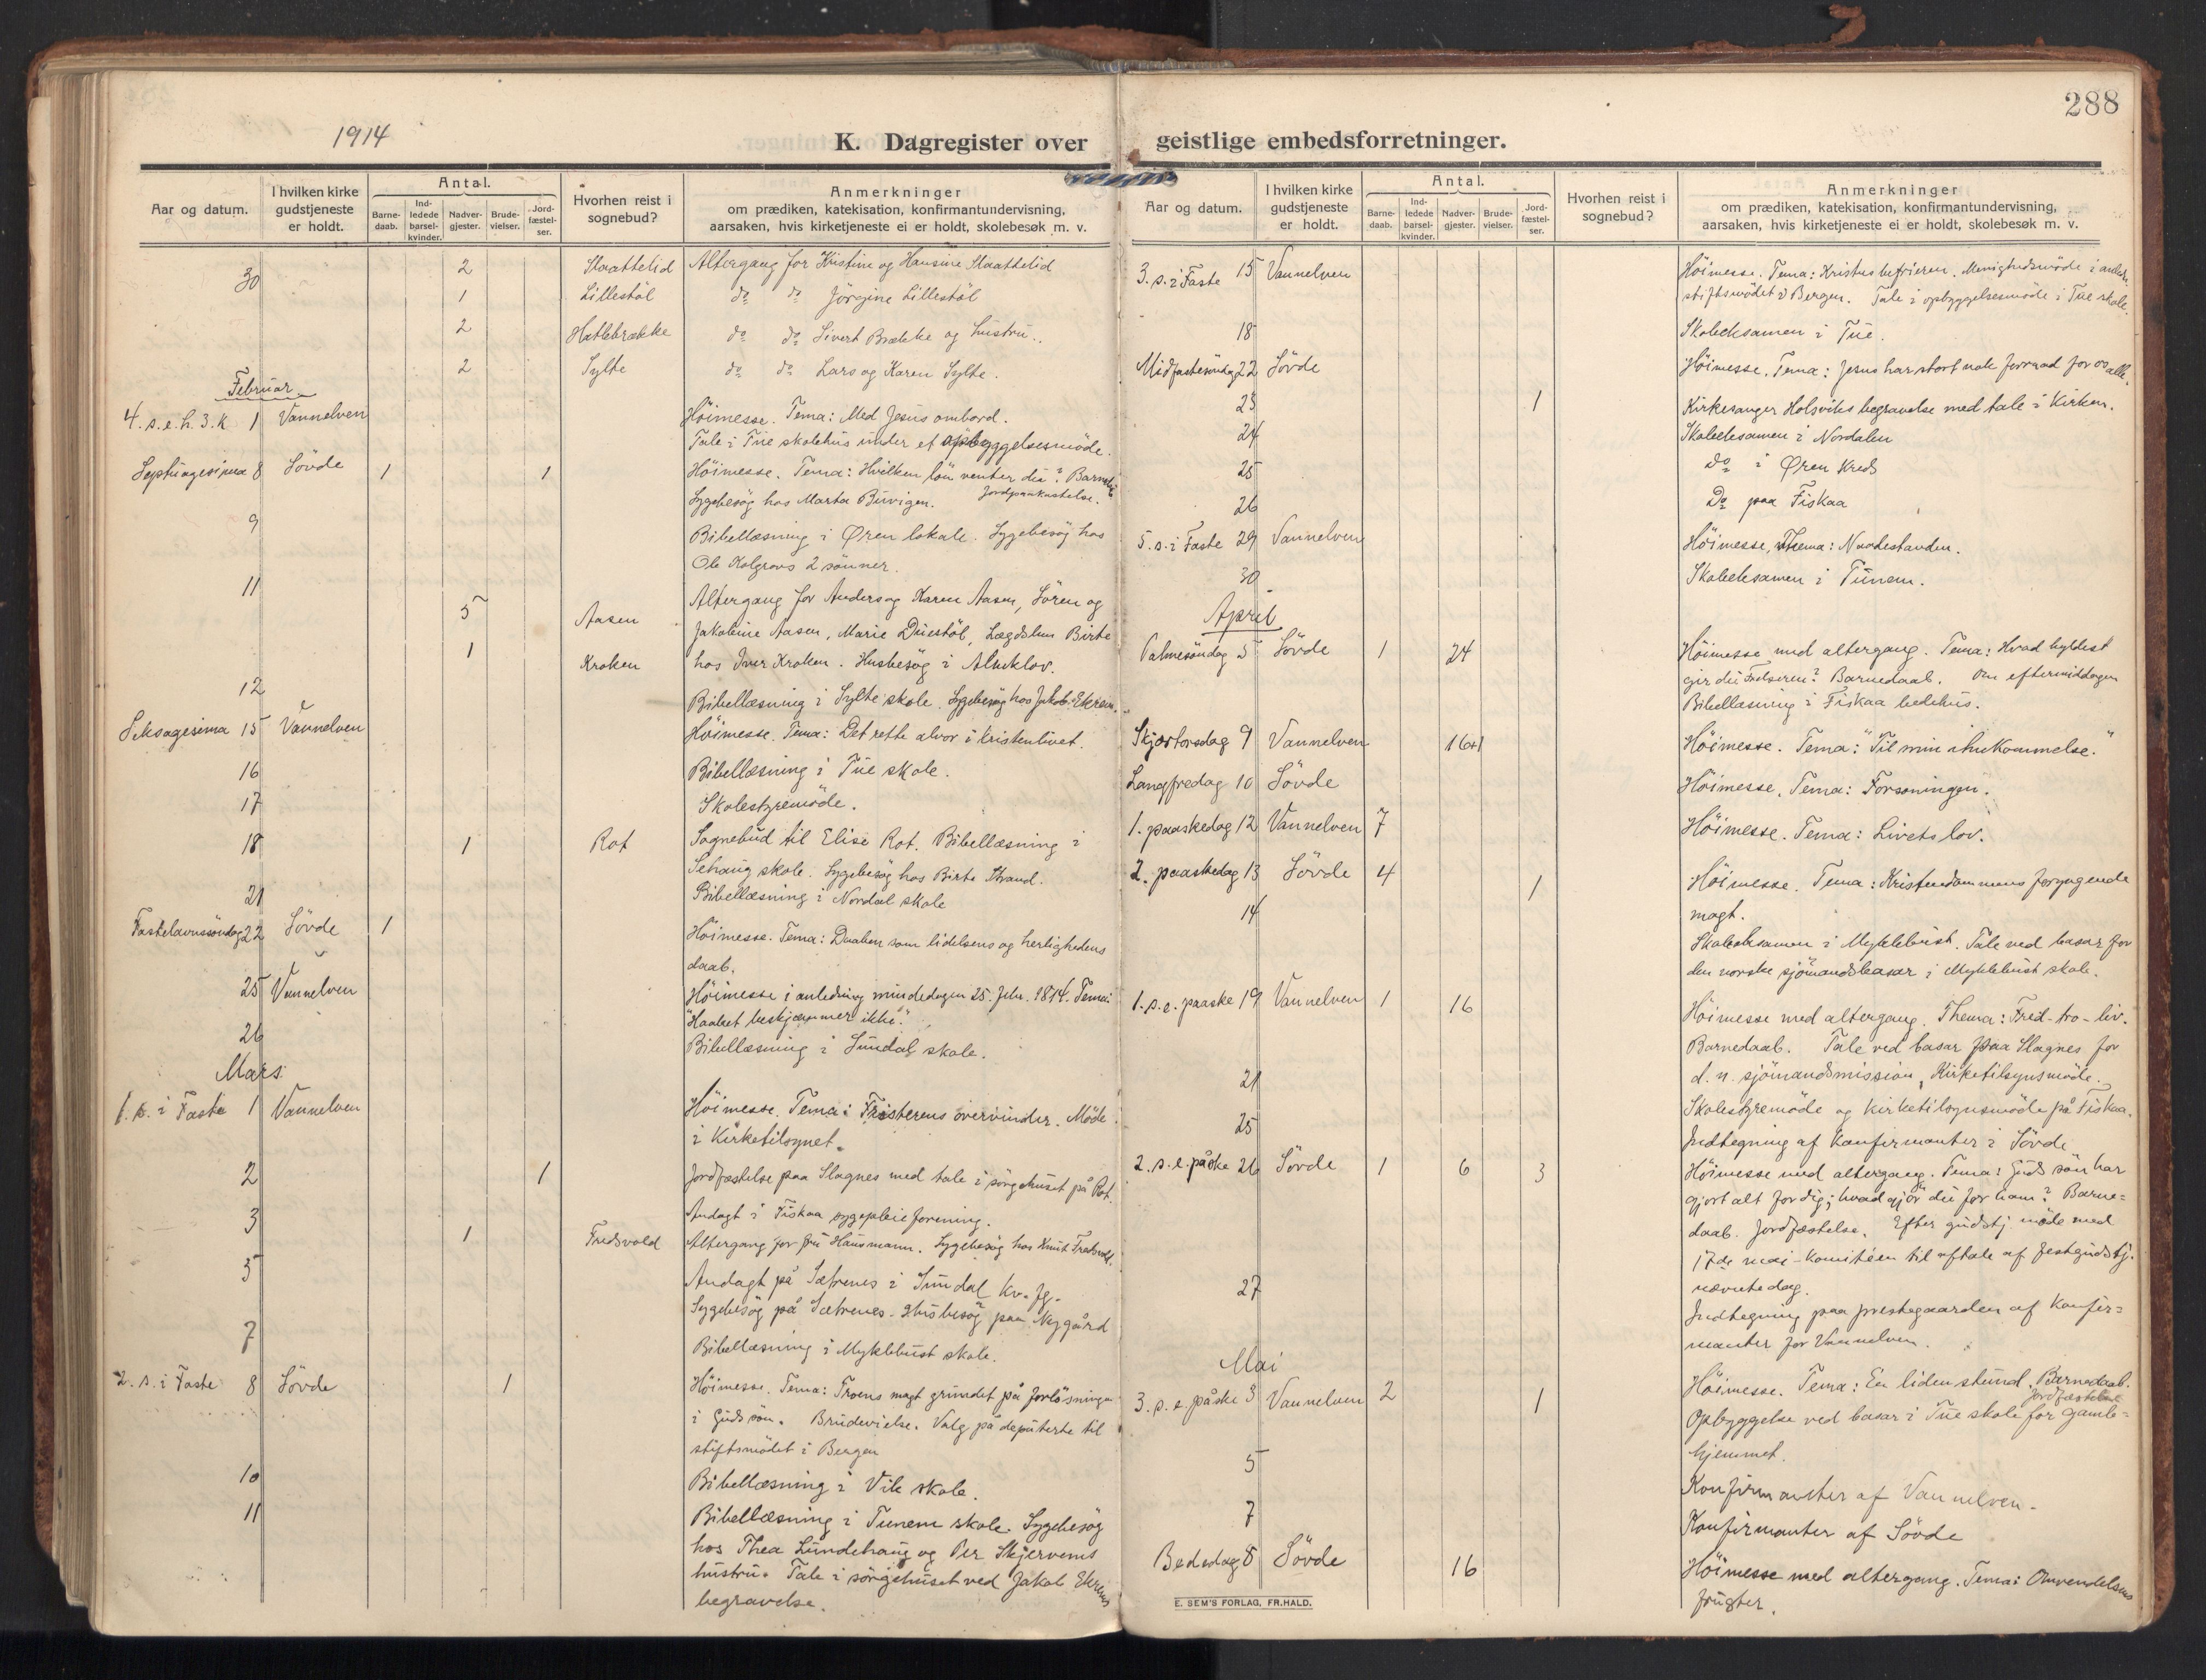 288
1914
K. Dagregister over geistlige embedsforretninger.
Aar og datum.
I hvilken kirke gudstjeneste er holdt.
Antal.
Barne-daab.
Ind-ledede barsel-kvinder.
Nadver-gjester.
Brude-vielser.
Jord-fæstel-ser.
Hvorhen reist i sognebud?
Anmerkninger
om prædiken, katekisation, konfirmantundervisning,
aarsaken, hvis kirketjeneste ei er holdt, skolebesøk m. v.
30 2 Staattelid Altergang for Kristine og Hansine Staattelid
1 Lillestöl do do Jörgine Lillestöl
2 Hatlebrække do do Sivert Brække og hustru..
2 Sylte do do Lars og Karen Sylte.
Februar
4. s. e. h. 3. k. 1 Vannelven Höimesse. Tema: Med Jesus ombord.
Tale i Tue skolehus under et opbyggelsesmöde.
Septuagesima 8 Sövde 1 1 Höimesse. Tema: Hvilken lön venter du? Barnedåb
Sygebesög hos Marta Buvigen. Jordpaakastelse.
9 Bibellæsning i Øren lokale. Sygebesög hos
Ole Kolgrovs 2 sönner.
11 5 Aasen Altergang for Anders og Karen Aasen, Sören og
Jakobine Aasen, Marie Duestöl, Lægdslem Birte
1 Kroken hos Iver Kroken. Husbesög i Almklov.
12 Bibellæsning i Sylte skole. Sygebesög hos Jakob Ekrem.
Seksagesima 15 Vannelven Höimesse. Tema: Det rette alvor i kristenlivet.
16 Bibellæsning i Tue skole.
17 Skolestyremöde.
18 1 Rot Sognebud til Elise Rot. Bibellæsning i
Sehaug skole. Sygebesög hos Birte Strand.
21 Bibellæsning i Nordal skole
Fastelavnssöndag 22 Sövde 1 Höimesse. Tema: Daaben som lidelsens og herlighedens
daab.
25 Vannelven Höimesse i anledning mindedagen 25. febr. 1814. Tema:
"Haabet beskjæmmer ikke".
26 Bibellæsning i Sundal skole.
Mars
1. s. i Faste 1 Vannelven Höimesse. Tema: Fristerens overvinder. Möde
i Kirketilsynet.
2 1 Jordfæstelse paa Slagnes med tale i sörgehuset på Rot.
3 Andagt i Fiskaa sygepleieforening.
1 Fredsvold Altergang for fru Hausmann. Sygebesög hos Knut Fredsvold.
5 Andagt på Sætrenes i Sundal Kv. fg.
Sygebesög på Sætrenes. Husbesög paa Nygård
7 Bibellæsning i Myklebust skole.
2. s. i Faste 8 Sövde 1 Höimesse. Tema: Troens magt grundet på forlösningen
i Guds sön. Brudevielse. Valg på deputerte til
stiftsmödet i Bergen
10 Bibellæsning i Vik skole.
11 Bibellæsning i Tunem skole. Sygebesög
hos Thea Lundehaug og Per Skjervems
hustru. Tale i sörgehuset ved Jakob Ekrems
begravelse.
Aar og datum.
I hvilken kirke gudstjeneste er holdt.
Antal.
Barne-daab.
Ind-ledede barsel-kvinder.
Nadver-gjester.
Brude-vielser.
Jord-fæstel-ser.
Hvorhen reist i sognebud?
Anmerkninger
om prædiken, katekisation, konfirmantundervisning,
aarsaken, hvis kirketjeneste ei er holdt, skolebesøk m. v.
3. s. i Faste 15 Vannelven Höimesse. Tema: Kristus befrieren. Menighedsmöde i
stiftsmödet i Bergen. Tale i opbyggelsesmöde i Tue skole.
18 Skoleeksamen i Tue.
Midfastesöndag 22 Sövde Höimesse. Tema: Jesus har stort nok forraad for os alle.
23 1 Kirkesanger Holsviks begravelse med tale i Kirken.
24 Skoleeksamen i Nordalen
25 do i Øren Kreds
26 Do paa Fiskaa
5. s. i Faste 29 Vannelven Höimesse, Thema: Naadestanden.
30 Skoleeksamen i Tunem.
April
Palmesöndag 5 Sövde 1 24 Höimesse med altergang. Tema: Hvad hyldest
gir du Frelseren? Barnedaab. Om eftermiddagen
Bibellæsning i Fiskaa bedehus.
Skjærtorsdag 9 Vannelven 16+1 Höimesse. Tema: "Til min ihukommelse."
Langfredag 10 Sövde Höimesse. Tema: Forsoningen.
1. paaskedag 12 Vannelven 7 Höimesse. Tema: Livets lov.
2. paaskedag 13 Sövde 4 1 Höimesse. Tema: Kristendommens foryngende
magt.
14 Skoleeksamen i Myklebust. Tale ved basar for
den norske sjömandsbasar i Myklebust skole.
1. s. e. paaske 19 Vannelven 1 16 Höimesse med altergang. Thema: Fred-tro-liv.
Barnedaab. Tale ved basar paa Slagnes for
d. n. sjömandsmission, Kirketilsynsmöde.
21 Skolestyremöde og kirketilsynsmöde på Fiskaa.
25 Indtegning af konfirmanter i Sövde
2. s. e. påske 26 Sövde 1 6 3 Höimesse med altergang. Tema: Guds sön har
gjort alt for dig; hvad gjör du for ham? Barne=
daab. Jordfæstelse. Efter gudstj. möde med
17de mai-komitéen til aftale af festgudstj.
nævnte dag.
27 Indtegning paa prestegaarden af konfir=
manter for Vannelven.
Mai
3. s. e. påske 3 Vannelven 2 1 Höimesse. Tema: En liden stund. Barnedaab.
Jordfæstelse
Opbyggelse ved basar i Tue skole for gamle=
hjemmet.
5 Konfirmanter af Vannelven.
7 Konfirmanter af Sövde
Bededag 8 Sövde 16 Höimesse med altergang. Tema: Omvendelsens
frugter.
E. SEM'S FORLAG, FR.HALD.